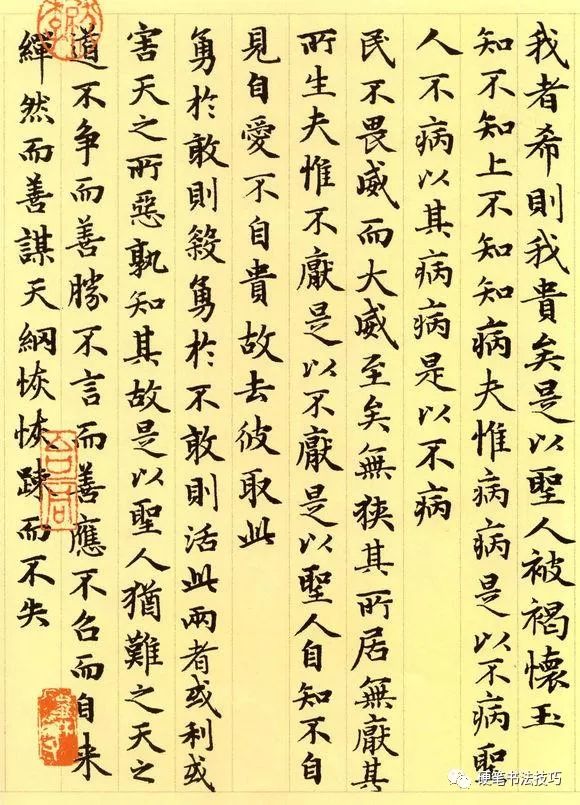 我者希則我貴矣是以聖人被褐懷玉
知不知上不知知病夫惟病病是以不病聖
人不病以其病病是以不病
民不畏威而大威至矣無狹其所居無厭其
所生夫惟不厭是以不厭是以聖人自知不自
見自愛不自貴故去彼取此
勇於敢則殺勇於不敢則活此兩者或利或
害天之所惡孰知其故是以聖人猶難之天之
道不争而善勝不言而善應不召而自来
繟然而善謀天網恢恢踈而不失
硬笔书法技巧